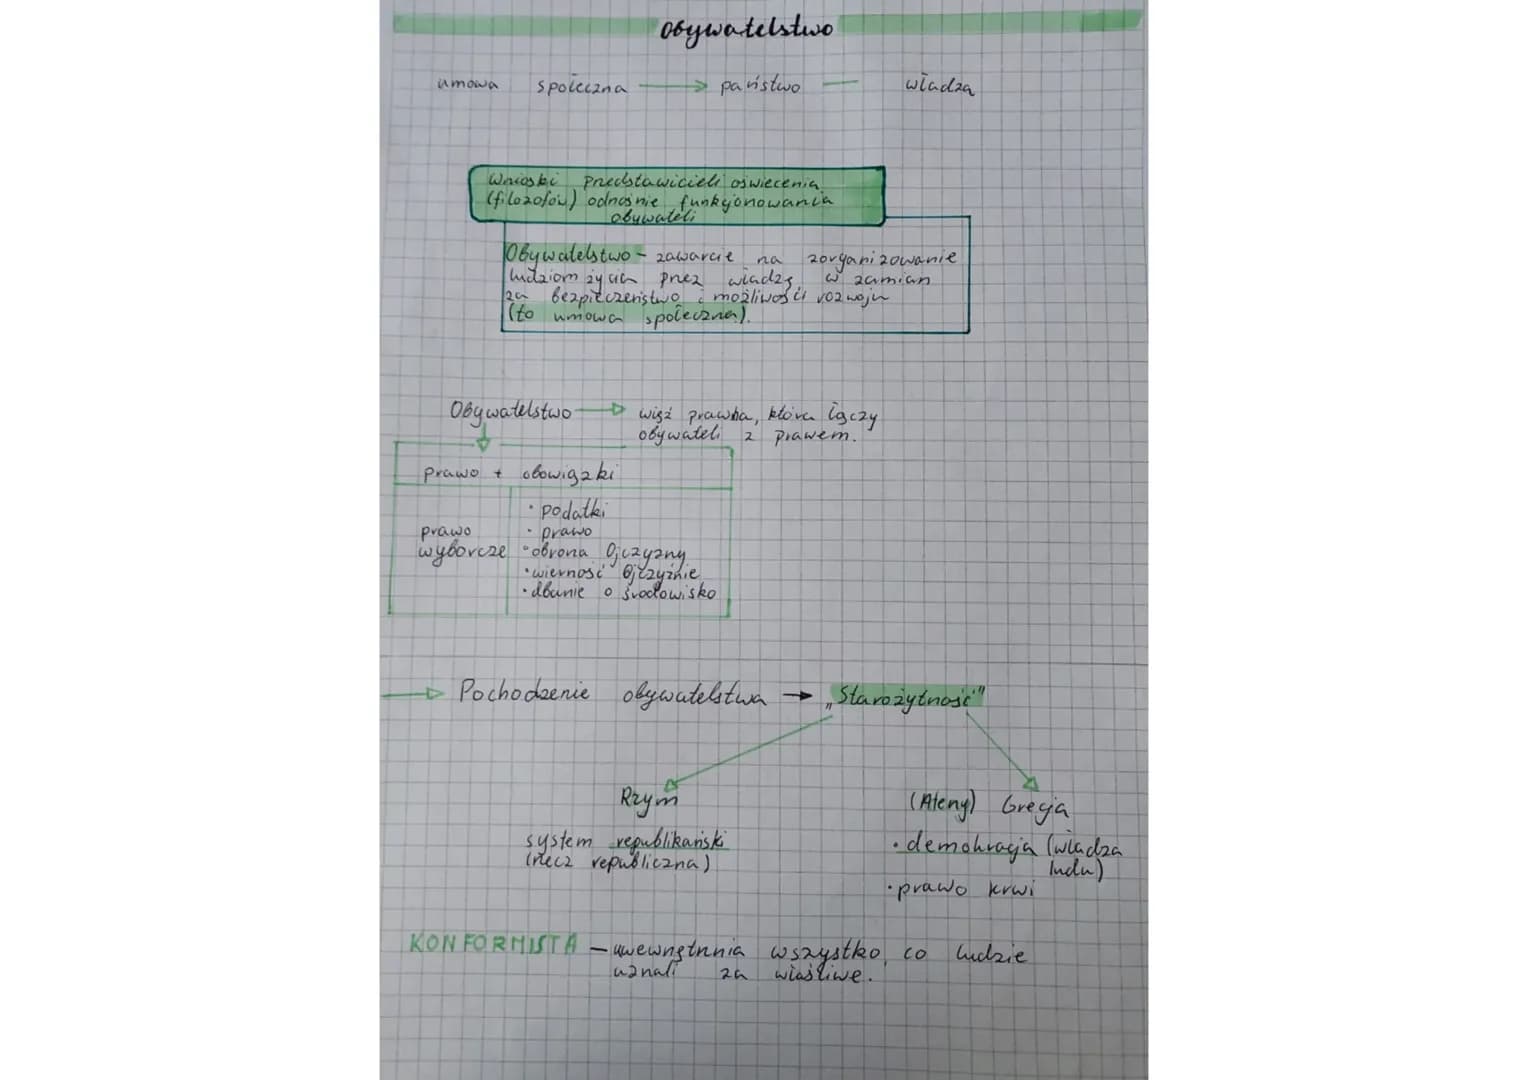 Obywatelstwo
umowa społeczna → państwo — władza
Wnioski przedstawicieli oświecenia
(filozofów) odnośnie funkcjonowania
obywateli
Obywatelstwo - zawarcie na zorganizowanie
ludziom życia przez władzę, w zamian
za bezpieczeństwo i możliwości rozwoju
(to umowa społeczna).
Obywatelstwo → więź prawna, która łączy
obywateli z prawem.
prawo + obowiązki
prawo
wyborcze
• podatki
• prawo
• obrona Ojczyzny
• wierność Ojczyźnie
• dbanie o środowisko
→ Pochodzenie obywatelstwa → „Starożytność"
Rzym
system republikański
(rzecz republiczna)
(Ateny) Grecja
• demokracja (władza
ludu)
• prawo krwi
KONFORMISTA — uwewnętrznia wszystko, co ludzie
uznali za właściwe.